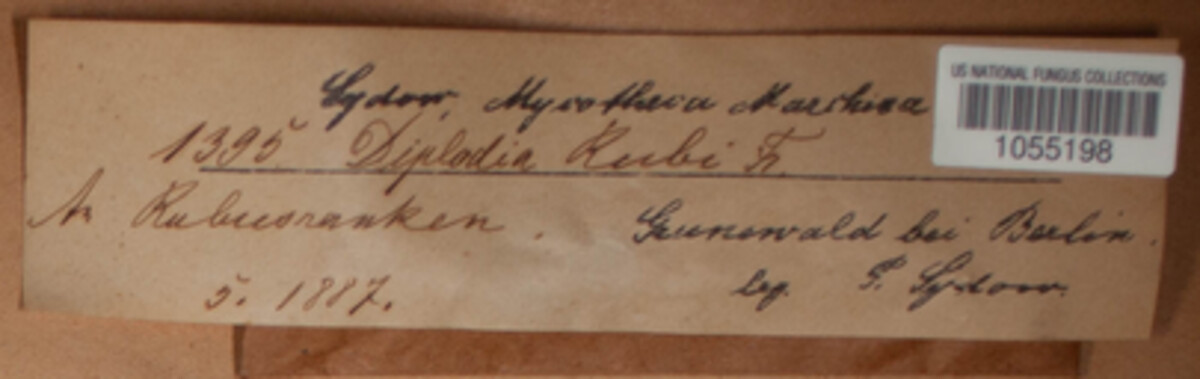 Sydow, Mycotheca Marchica
1395 Diplodia Rubi Fr.
An Rubusranken. Grunewald bei Berlin.
5. 1887. leg. P. Sydow.
US NATIONAL FUNGUS COLLECTIONS
1055198